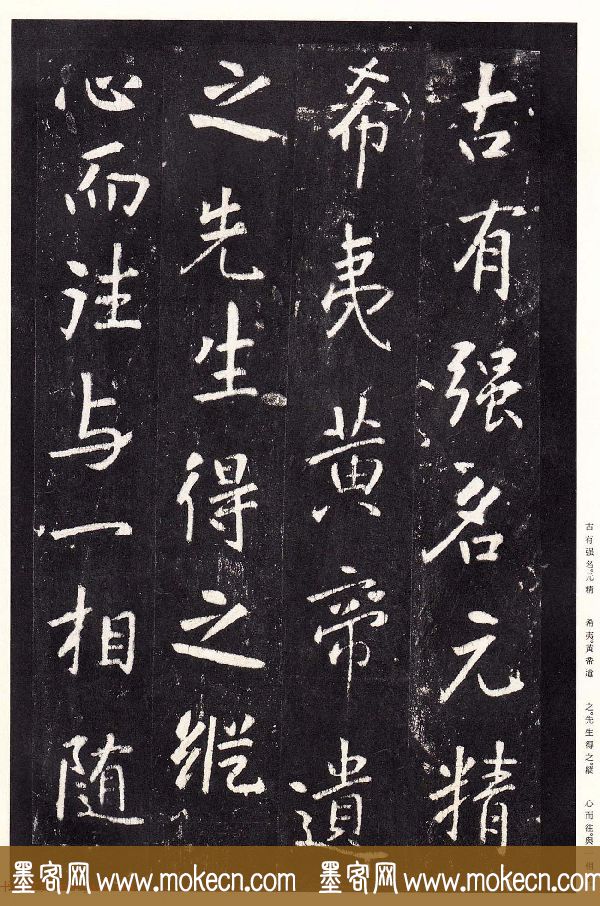 古有强名元精
希夷黄帝遺
之先生得之縱
心而往与一相隨
古有强名。元精 希夷。黃帝遺 之。先生得之。縱 心而往。與
墨客网 www.mokecn.com 墨客网 www.mokecn.com